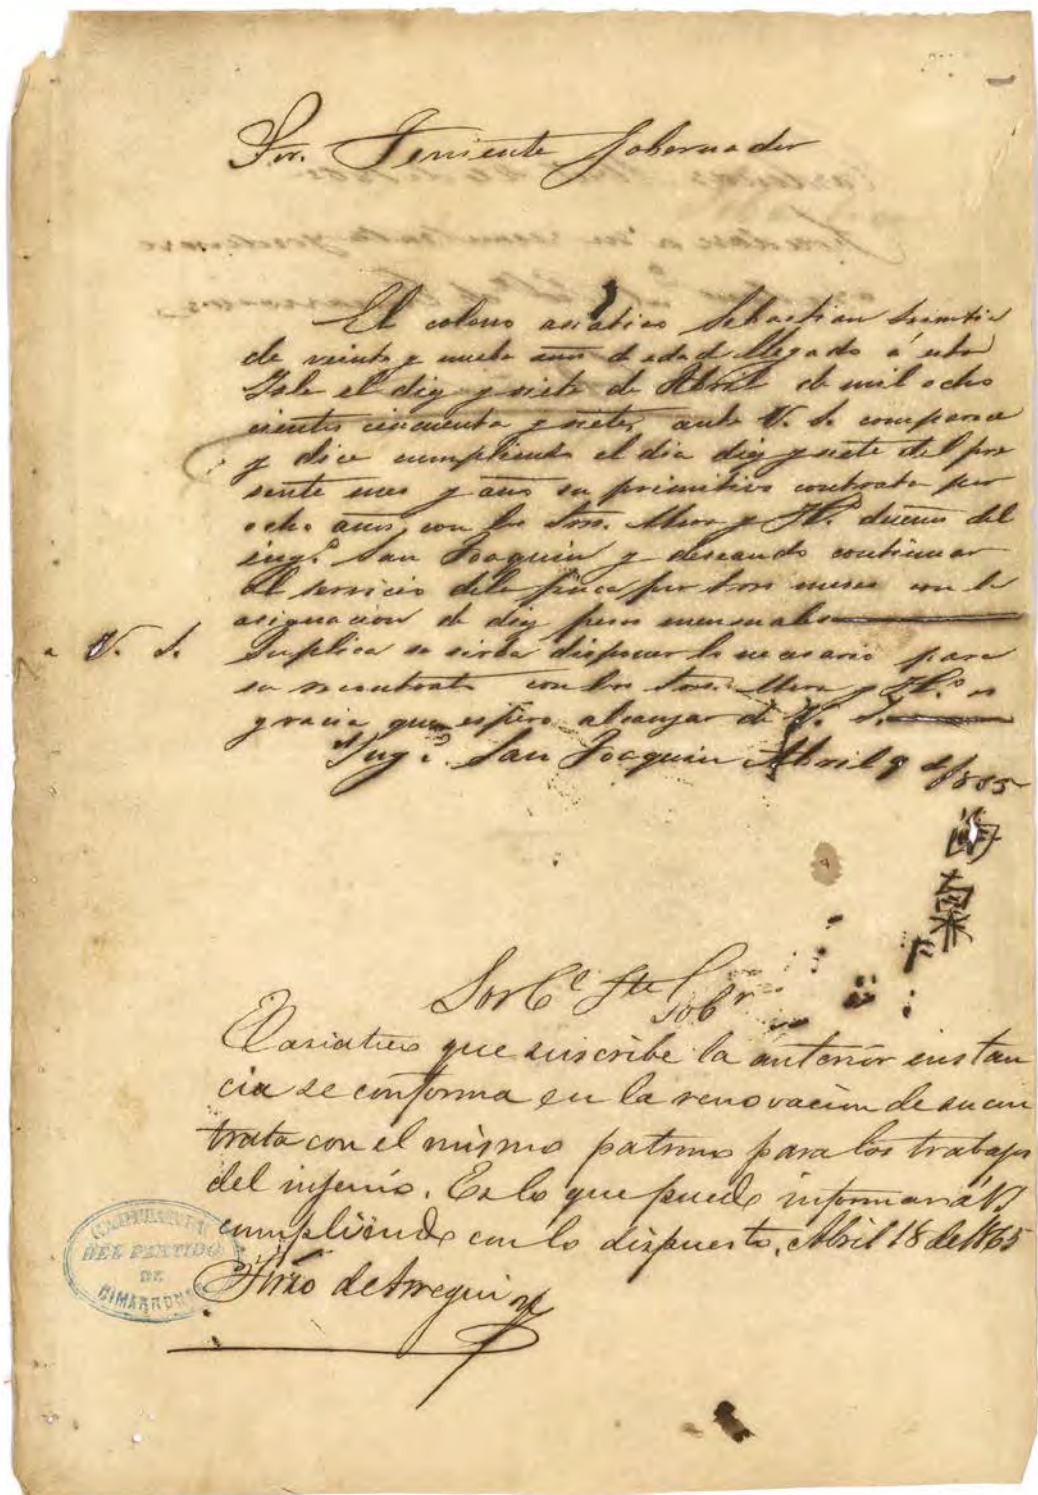 Sor. Teniente Gobernador
El colono asiatico Sebastian
de veinte y nueve años de edad llegado á esta
Isla el diez y siete de Abril de mil ocho
cientos cincuenta y siete, ante V. S. comparece
y dice cumpliendo el dia diez y siete del pre
sente mes y año su primitiva contrata por
ocho años, con los Sres. Mora y Hos. dueños del
ingo. San Joaquin y deseando continuar
al servicio dela finca por tres meses con la
asignacion de diez pesos mensuales
a V. S. Suplica se sirba disponer lo necesario para
su recontrata con los Sres. Mora y Hos. es
gracia que espera alcanzar de V. S.
Ingo. San Joaquin Abril 9 de 1865
Sor Cl Tte Gobr
El asiatico que suscribe la anterior instan
cia se conforma en la renovacion de su con
trata con el mismo patrono para los trabajos
del ingenio. Es lo que puedo informar á V.S
cumpliendo con lo dispuesto. Abril 18 de 1865
de Arregui
CAPITANIA
DEL PARTIDO
DE
CIMARRONES